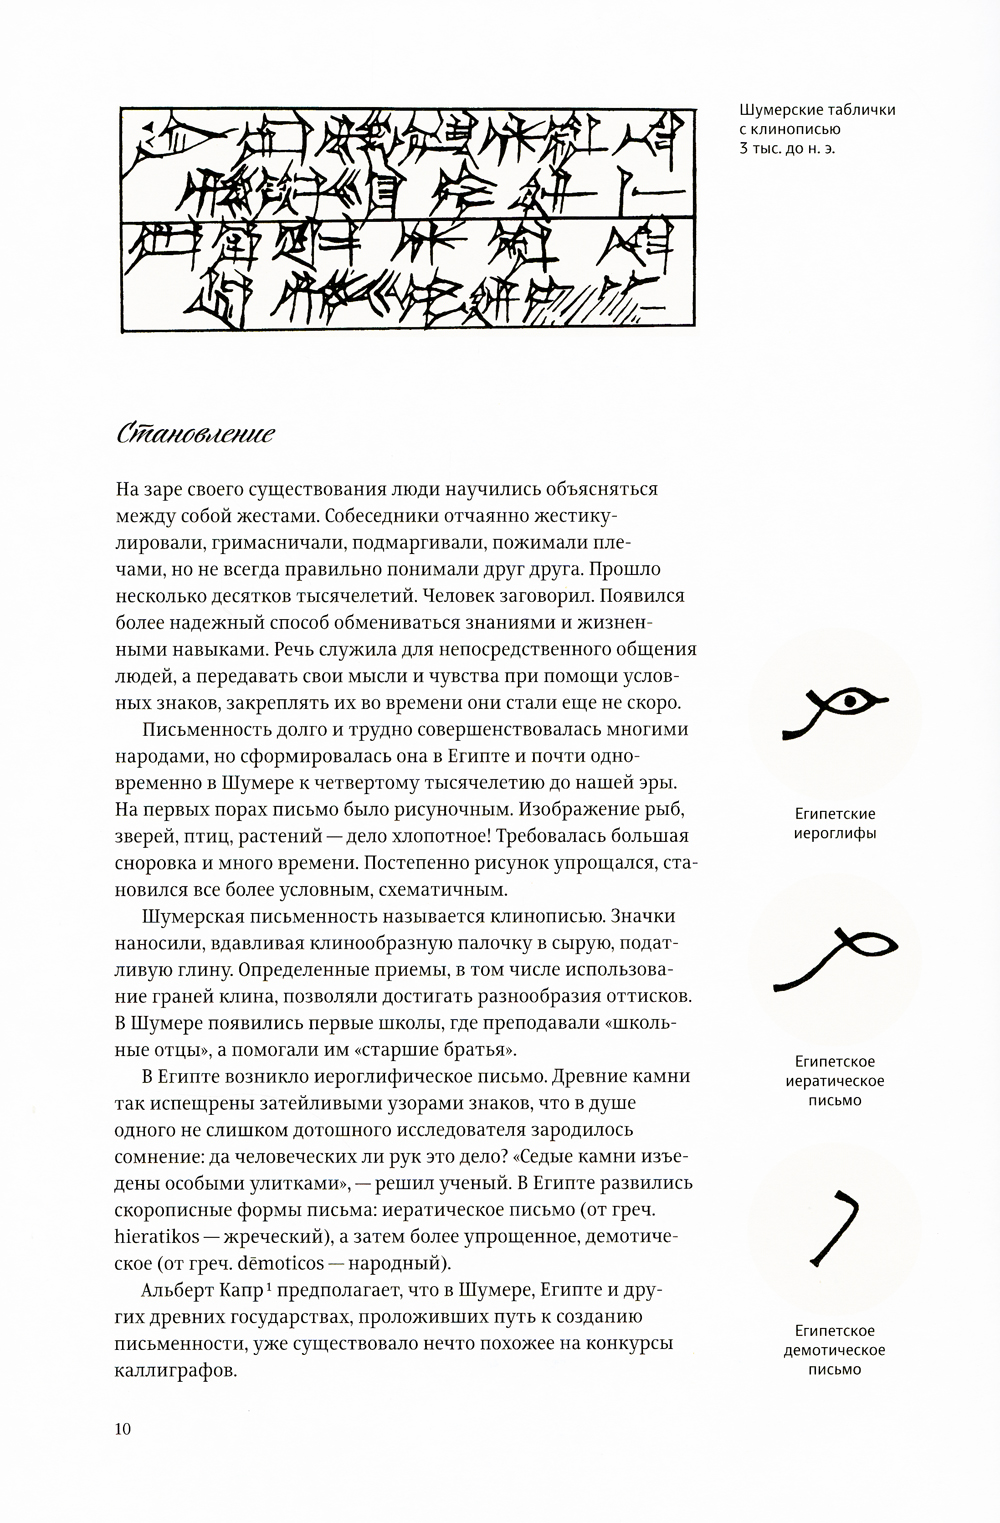 Шумерские таблички
с клинописью
3 тыс. до н. э.
Становление
На заре своего существования люди научились объясняться
между собой жестами. Собеседники отчаянно жестику-
лировали, гримасничали, подмаргивали, пожимали пле-
чами, но не всегда правильно понимали друг друга. Прошло
несколько десятков тысячелетий. Человек заговорил. Появился
более надежный способ обмениваться знаниями и жизнен-
ными навыками. Речь служила для непосредственного общения
людей, а передавать свои мысли и чувства при помощи услов-
ных знаков, закреплять их во времени они стали еще не скоро.
Письменность долго и трудно совершенствовалась многими
народами, но сформировалась она в Египте и почти одно-
временно в Шумере к четвертому тысячелетию до нашей эры.
На первых порах письмо было рисуночным. Изображение рыб,
зверей, птиц, растений — дело хлопотное! Требовалась большая
сноровка и много времени. Постепенно рисунок упрощался, ста-
новился все более условным, схематичным.
Шумерская письменность называется клинописью. Значки
наносили, вдавливая клинообразную палочку в сырую, подат-
ливую глину. Определенные приемы, в том числе использова-
ние граней клина, позволяли достигать разнообразия оттисков.
В Шумере появились первые школы, где преподавали «школь-
ные отцы», а помогали им «старшие братья».
В Египте возникло иероглифическое письмо. Древние камни
так испещрены затейливыми узорами знаков, что в душе
одного не слишком дотошного исследователя зародилось
сомнение: да человеческих ли рук это дело? «Седые камни изъе-
дены особыми улитками», — решил ученый. В Египте развились
скорописные формы письма: иератическое письмо (от греч.
hieratikos — жреческий), а затем более упрощенное, демотиче-
ское (от греч. dēmoticos — народный).
Альберт Капр¹ предполагает, что в Шумере, Египте и дру-
гих древних государствах, проложивших путь к созданию
письменности, уже существовало нечто похожее на конкурсы
каллиграфов.
Египетские
иероглифы
Египетское
иератическое
письмо
Египетское
демотическое
письмо
10